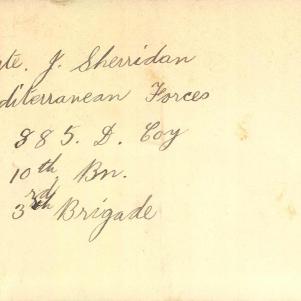 te. J. Sherridan
diterranean Forces
885. D. Coy
10th Bn.
3rd Brigade